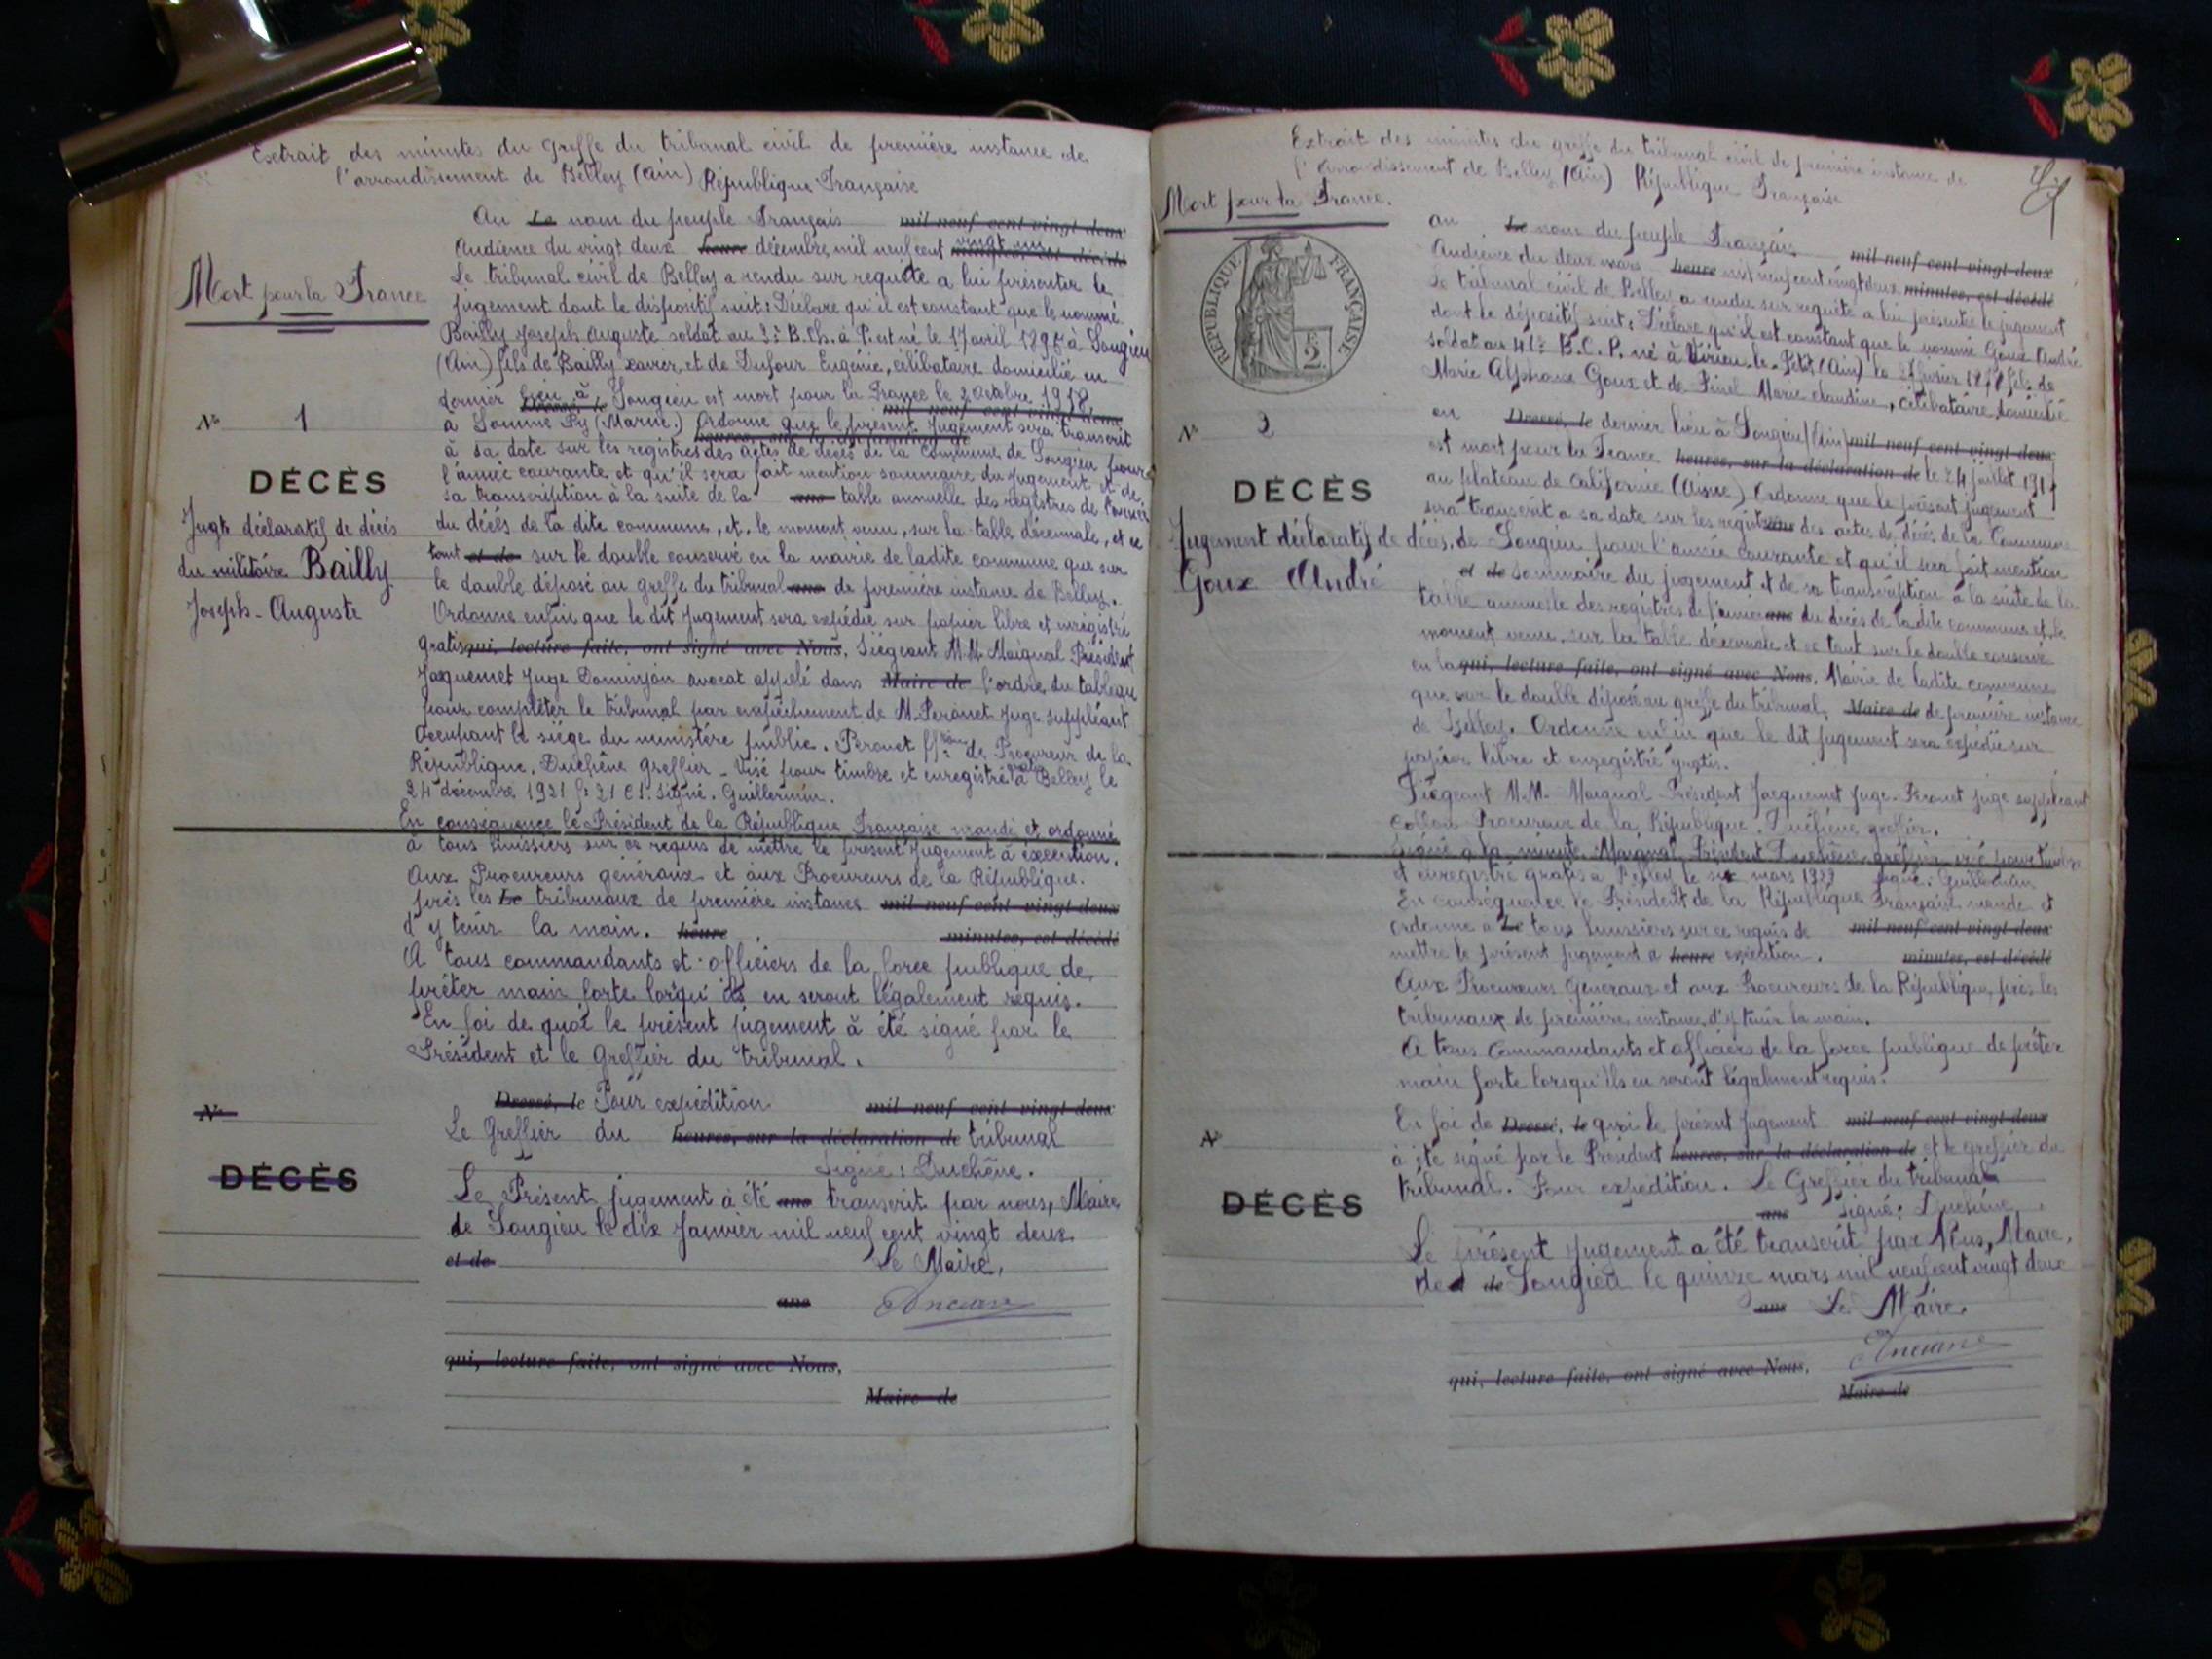 Extrait des minutes du greffe du tribunal civil de première instance de
l'arrondissement de Belley (Ain) République Française
Au Le nom du peuple Français mil neuf cent vingt deux
Audience du vingt deux heure décembre mil neuf cent vingt un minutes, est décédé
Le tribunal civil de Belley a rendu sur requête a lui présentée le
jugement dont le dispositif suit: Déclare qu'il est constant que le nommé
Mort pour la France
Bailly Joseph Auguste soldat au 3e B. Ch. à P. est né le 17 avril 1898 à Songieu
(Ain) fils de Bailly Xavier, et de Dufour Eugénie, célibataire domicilié en
dernier Dressé, le lieu à Songieu est mort pour la France le 2 octobre 1918
N° 1
à Somme Py (Marne.) Ordonne que le présent Jugement sera transcrit mil neuf cent vingt deux
heures, sur la déclaration de
à sa date sur les registres des actes de décès de la Commune de Songieu pour
l'année courante et qu'il sera fait mention sommaire du Jugement et de
DÉCÈS
sa transcription à la suite de la ans table annuelle des registres de l'année
Jugt déclaratif de décès
du décès de la dite commune, et, le moment venu, sur la table décennale, et ce
du militaire Bailly
tant et de sur le double conservé en la mairie de ladite commune que sur
Joseph-Auguste
le double déposé au greffe du tribunal ans de première instance de Belley.
Ordonne enfin que le dit Jugement sera expédié sur papier libre et enregistré
gratis qui, lecture faite, ont signé avec Nous, Siégeant M.M. Maignal Président
Jacquemet Juge Dominjon avocat appelé dans Maire de l'ordre du tableau
pour compléter le tribunal par empêchement de M. Peronet Juge suppléant
occupant le siège du ministère public. Peronet de Procureur de la
République. Duchêne greffier - Visé pour timbre et enregistré gratis à Belley le
24 décembre 1921 f° 21 C1. Signé. Guillermin.
En conséquence le Président de la République Française mande et ordonne
à tous huissiers sur ce requis de mettre le présent Jugement à exécution.
Aux Procureurs généraux et aux Procureurs de la République.
près les Le tribunaux de première instance mil neuf cent vingt deux
d'y tenir la main. heure minutes, est décédé
A tous commandants et officiers de la force publique de
prêter main forte lorqu'ils en seront légalement requis.
En foi de quoi le présent jugement à été signé par le
Président et le Greffier du tribunal.
Dressé, le Pour expédition mil neuf cent vingt deux
N°
Le Greffier du heures, sur la déclaration de tribunal
Signé: Duchêne.
DÉCÈS
Le Présent jugement à été ans transcrit par nous, Maire
de Songieu le dix Janvier mil neuf cent vingt deux
et de Le Maire,
ans Ancian
qui, lecture faite, ont signé avec Nous,
Maire de
Extrait des minutes du greffe du tribunal civil de première instance de
l'arrondissement de Belley (Ain) République Française
Mort pour la France.
au Le nom du peuple Français mil neuf cent vingt deux
Audience du deux mars heure mil neuf cent vingt deux minutes, est décédé
RÉPUBLIQUE FRANÇAISE
Le tribunal civil de Belley a rendu sur requête a lui présentée le jugement
dont le dispositif suit: Déclare qu'il est constant que le nommé Goux André
soldat au 41e B.C.P. né à Virieu-le-Petit (Ain) le février fils de
Marie Alphonse Goux et de Pinel Marie claudine, célibataire domicilié
N° 2
en Dressé, le dernier lieu à Songieu (Ain) mil neuf cent vingt deux
est mort pour la France heures, sur la déclaration de le 24 juillet 1917
DÉCÈS
au plateau de Californie (Aisne) Ordonne que le présent jugement
sera transcrit a sa date sur les registres des actes de décès de la Commune
Jugement déclaratif de décès. de Songieu pour l'année courante et qu'il sera fait mention
Goux André
et de sommaire du jugement et de sa transcription à la suite de la
table annuelle des registres de l'année ans du décès de ladite commune et, le
moment venu, sur la table décennale et ce tant sur le double conservé
en la qui, lecture faite, ont signé avec Nous, Mairie de ladite commune
que sur le double déposé au greffe du tribunal, Maire de de première instance
de Belley. Ordonne enfin que le dit jugement sera expédié sur
papier libre et enregistré gratis.
Siégeant M.M. Maignal Président Jacquemet Juge. Peronet juge suppléant
Collon Procureur de la République. Duchêne greffier.
Signé à la minute. Maignal, Président Duchêne, greffier visé pour timbre
et enregistré gratis à Belley le six mars 1922 Signé: Guillermin
En conséquence le Président de la République Française mande et
ordonne à Le tous huissiers sur ce requis de mil neuf cent vingt deux
mettre le présent jugement a heure exécution. minutes, est décédé
Aux Procureurs Généraux et aux Procureurs de la République près les
tribunaux de première instance, d'y tenir la main.
A tous Commandants et officiers de la force publique de prêter
main forte lorsqu'ils en seront légalement requis.
En foi de Dressé, le quoi le présent Jugement mil neuf cent vingt deux
N°
à été signé par le Président heures, sur la déclaration de et le greffier du
tribunal. Pour expédition. Le Greffier du tribunal
DÉCÈS
ans Signé: Duchêne
Le présent jugement a été transcrit par Nous, Maire,
de et de Songieu le quinze mars mil neuf cent vingt deux
ans Le Maire.
Ancian
qui, lecture faite, ont signé avec Nous,
Maire de